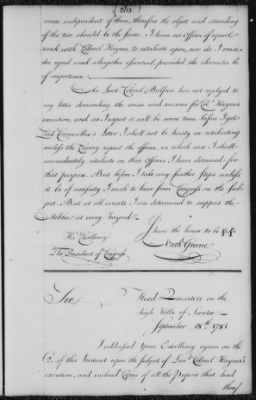 203
mies independent of them, therefore the object and standing
of the two should be the same. I have no officer of equal
rank with Colonel Haynes to retaliate upon, nor do I consider
equal rank altogether essential, provided the character be
of importance.
As Lieut Colonel Balfour has not replied to
my letter demanding the sense and reasons for Col. Haynes
execution, and as I expect it will be some time before I get
Lord Cornwallis's letter I shall not be hasty in retaliating
unless the Enemy repeat the offence, in which case I shall
immediately retaliate on those officers I have detained for
that purpose. But before I take any further steps unless
it be of necessity I wish to hear from Congress on the sub-
ject. But at all events I am determined to support the
Militia at any hazard.
I have the honor to be &c &c
Nath Greene
His Excellency
The President of Congress
Sir
Head Quarters on the
high Hills of Santee
September 18th 1781
I address'd your Excellency upon the
of this Instant upon the subject of Lieut Colonel Haynes's
execution, and enclosed Copies of all the Papers that had